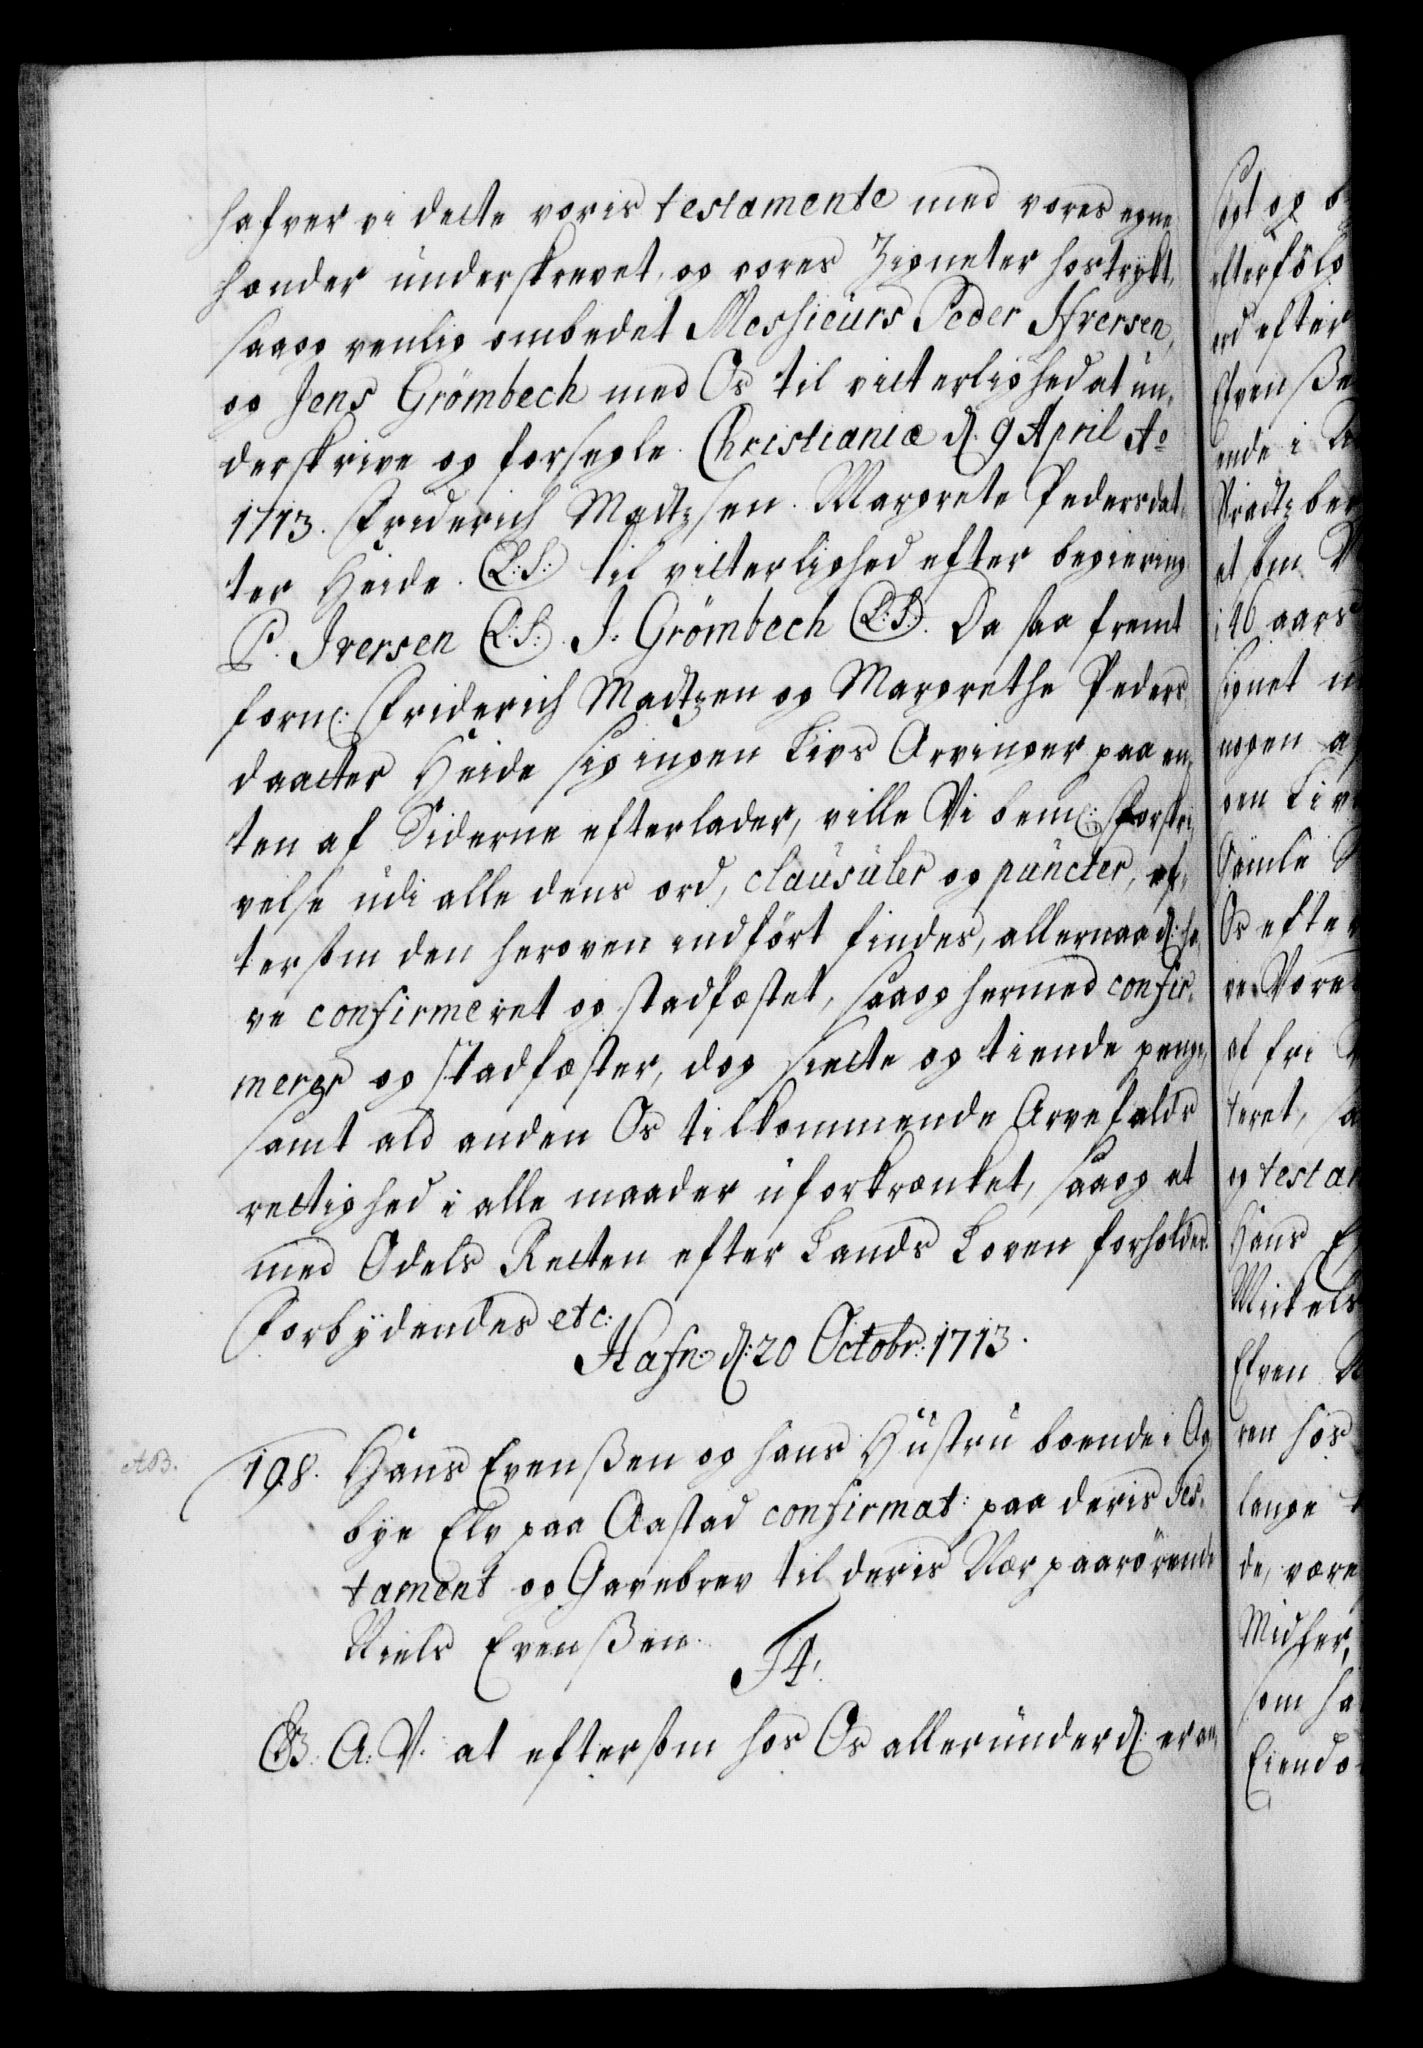 hafver vi dette voris testamente med vores egne
hænder underskrevet, og vores Zigneter hostrykt,
saa og venlig ombedet Messieurs Peder Ifversen,
og Jens Grömbech med Os til vitterlighed at un¬
derskrive og forsegle. Christiania d. 9 April Ao
1713. Friderich Madtzsen. Margrete Pedersdat¬
ter Heide. L:S: til vitterlighed efter begiering
P. Iversen L:S:. J. Grömbech L:S:. Da saa fremt
forne: Friderich Madtzen og Margrethe Peders¬
daatter Heide sig ingen Livs Arvinger paa en¬
ten af Siderne efterlader, ville Vi bemte: Forskri¬
velse udi alle dens ord, clausuler og puncter, ef¬
tersom den heroven indfört findes, allernaadg: ha¬
ve confirmeret og stadfæstet, saa og hermed confir¬
merer og stadfæster, dog siette og tiende penge,
samt ald anden Os tilkommende Arvefalds
rettighed i alle maader uforkrænket, saa og at
med Odels Retten efter Lands Loven forholdes.
Forbydendes etc:
Hafn: d: 20 Octobr: 1713.
AB.
198. Hans Evenßen og hans Hustru boende i Og
bye Elv paa Aastad confirmat: paa deris Tes¬
tament og Gavebrev til deris Nær paarörende
Niels Evenßen.
F4.
C: A: V. at eftersom hos Os allerunderdg: er an¬
sögt og b
efterfölg
ord efter
Evenße
ende i
et som
i 46 aars
signet
nogen a
gen Liv
Gamle
Os efter
ve Vore
af fri
teret, sa
og testa
Hans E
Mikels
Even N
ren hos
lange
de, være
Midler,
som ha
Eiendo